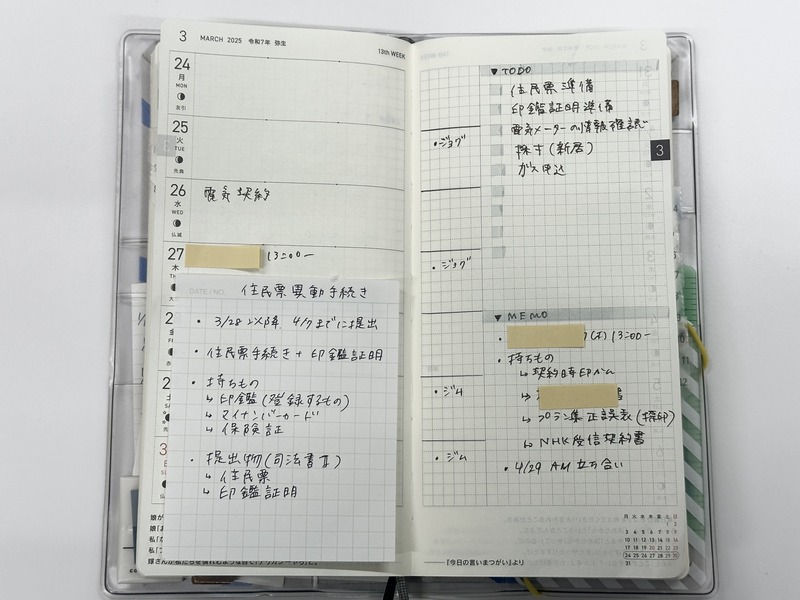 3 MARCH 2025 令和7年 弥生
13th WEEK
24
月
MON
友引
25
火
TUE
先負
26
水
WED
仏滅
電気契約
27
木
13:00〜
DATE / NO.
住民票異動手続き
・3/28以降 4/7までに提出
・住民票手続き + 印鑑証明
・持ちもの
↳ 印鑑(登録するもの)
↳ マイナンバーカード
↳ 保険証
・提出物(司法書士)
↳ 住民票
↳ 印鑑証明
・ジョグ
・ジョグ
・ジム
・ジム
▼TODO
住民票準備
印鑑証明準備
電気メーターの情報確認
採寸(新居)
ガス申込
3
▼MEMO
(木) 13:00〜
・持ちもの
↳ 契約時印かん
↳ プラン集正誤表(押印)
↳ NHK受信契約書
・4/29 AM 立ち合い
月 火 水 木 金 土 日
1 2
3 4 5 6 7 8 9
10 11 12 13 14 15 16
17 18 19 20 21 22 23
24 25 26 27 28 29 30
31
──『今日の言いまつがい』より